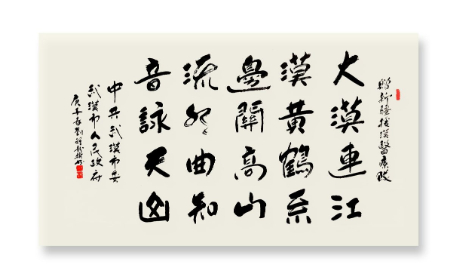 贈新疆援漢醫療隊
大漠連江
漢黄鶴系
邊關高山
流水曲知
音詠天山
中共武漢市委
武漢市人民政府
庚子春劉